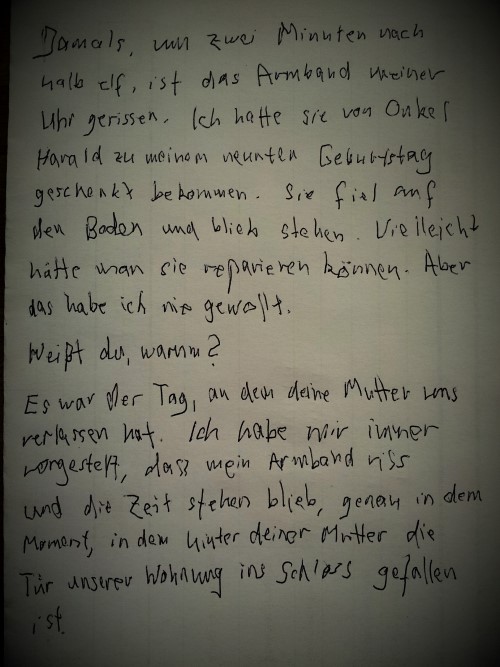 Damals, um zwei Minuten nach
halb elf, ist das Armband meiner
Uhr gerissen. Ich hatte sie von Onkel
Harald zu meinem neunten Geburtstag
geschenkt bekommen. Sie fiel auf
den Boden und blieb stehen. Vielleicht
hätte man sie reparieren können. Aber
das habe ich nie gewollt.
Weißt du, warum?
Es war der Tag, an dem deine Mutter uns
verlassen hat. Ich habe mir immer
vorgestellt, dass mein Armband riss
und die Zeit stehen blieb, genau in dem
Moment, in dem hinter deiner Mutter die
Tür unserer Wohnung ins Schloss gefallen
ist.